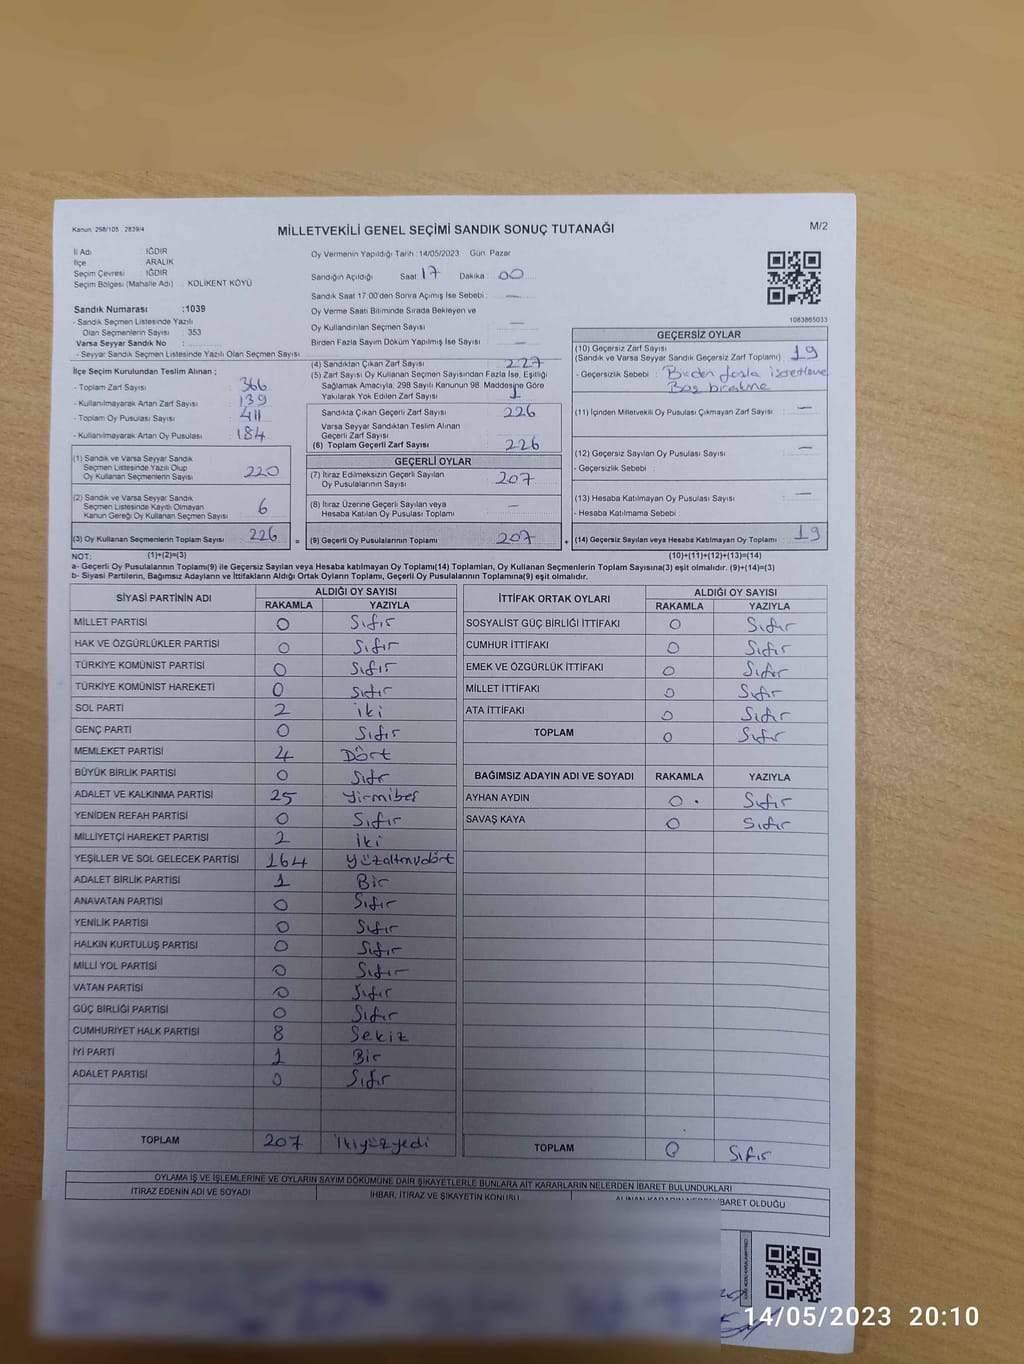 Kanun: 298/105 . 2839/4
MİLLETVEKİLİ GENEL SEÇİMİ SANDIK SONUÇ TUTANAĞI
M/2
İl Adı IĞDIR
İlçe ARALIK
Seçim Çevresi IĞDIR
Seçim Bölgesi (Mahalle Adı) . KOLİKENT KÖYÜ
Oy Vermenin Yapıldığı Tarih : 14/05/2023 Gün: Pazar
Sandığın Açıldığı Saat : 17 Dakika : 00
Sandık Saat 17:00'den Sonra Açımış İse Sebebi : —
Oy Verme Saati Bitiminde Sırada Bekleyen ve
Oy Kullandırılan Seçmen Sayısı : —
Birden Fazla Sayım Döküm Yapılmış İse Sayısı : —
1083865033
Sandık Numarası :1039
- Sandık Seçmen Listesinde Yazılı
Olan Seçmenlerin Sayısı : 353
Varsa Seyyar Sandık No :
- Seyyar Sandık Seçmen Listesinde Yazılı Olan Seçmen Sayısı
İlçe Seçim Kurulundan Teslim Alınan ;
- Toplam Zarf Sayısı : 366
- Kullanılmayarak Artan Zarf Sayısı : 139
- Toplam Oy Pusulası Sayısı : 411
- Kullanılmayarak Artan Oy Pusulası : 184
(1) Sandık ve Varsa Seyyar Sandık
Seçmen Listesinde Yazılı Olup
Oy Kullanan Seçmenlerin Sayısı : 220
(2) Sandık ve Varsa Seyyar Sandık
Seçmen Listesinde Kayıtlı Olmayan
Kanun Gereği Oy Kullanan Seçmen Sayısı : 6
(3) Oy Kullanan Seçmenlerin Toplam Sayısı : 226
(4) Sandıktan Çıkan Zarf Sayısı : 227
(5) Zarf Sayısı Oy Kullanan Seçmen Sayısından Fazla İse, Eşitliği
Sağlamak Amacıyla, 298 Sayılı Kanunun 98. Maddesine Göre
Yakılarak Yok Edilen Zarf Sayısı : 1
Sandıkta Çıkan Geçerli Zarf Sayısı : 226
Varsa Seyyar Sandıktan Teslim Alınan
Geçerli Zarf Sayısı :
(6) Toplam Geçerli Zarf Sayısı : 226
GEÇERLİ OYLAR
(7) İtiraz Edilmeksizin Geçerli Sayılan
Oy Pusulalarının Sayısı : 207
(8) İtiraz Üzerine Geçerli Sayılan veya
Hesaba Katılan Oy Pusulası Toplamı : —
= (9) Geçerli Oy Pusulalarının Toplamı : 207
GEÇERSİZ OYLAR
(10) Geçersiz Zarf Sayısı
(Sandık ve Varsa Seyyar Sandık Geçersiz Zarf Toplamı) : 19
- Geçersizlik Sebebi : Birden fazla işaretleme
Boş bırakma
(11) İçinden Milletvekili Oy Pusulası Çıkmayan Zarf Sayısı : —
(12) Geçersiz Sayılan Oy Pusulası Sayısı : —
- Geçersizlik Sebebi :
(13) Hesaba Katılmayan Oy Pusulası Sayısı : —
- Hesaba Katılmama Sebebi :
+ (14) Geçersiz Sayılan veya Hesaba Katılmayan Oy Toplamı : 19
NOT: (1)+(2)=(3) (10)+(11)+(12)+(13)=(14)
a- Geçerli Oy Pusulalarının Toplamı(9) ile Geçersiz Sayılan veya Hesaba Katılmayan Oy Toplamı(14) Toplamları, Oy Kullanan Seçmenlerin Toplam Sayısına(3) eşit olmalıdır. (9)+(14)=(3)
b- Siyasi Partilerin, Bağımsız Adayların ve İttifakların Aldığı Ortak Oyların Toplamı, Geçerli Oy Pusulalarının Toplamına(9) eşit olmalıdır.
SİYASİ PARTİNİN ADI ALDIĞI OY SAYISI
RAKAMLA YAZIYLA
MİLLET PARTİSİ 0 Sıfır
HAK VE ÖZGÜRLÜKLER PARTİSİ 0 Sıfır
TÜRKİYE KOMÜNİST PARTİSİ 0 Sıfır
TÜRKİYE KOMÜNİST HAREKETİ 0 Sıfır
SOL PARTİ 2 iki
GENÇ PARTİ 0 Sıfır
MEMLEKET PARTİSİ 4 Dört
BÜYÜK BİRLİK PARTİSİ 0 Sıfır
ADALET VE KALKINMA PARTİSİ 25 Yirmibeş
YENİDEN REFAH PARTİSİ 0 Sıfır
MİLLİYETÇİ HAREKET PARTİSİ 2 İki
YEŞİLLER VE SOL GELECEK PARTİSİ 164 yüzaltmışdört
ADALET BİRLİK PARTİSİ 1 Bir
ANAVATAN PARTİSİ 0 Sıfır
YENİLİK PARTİSİ 0 Sıfır
HALKIN KURTULUŞ PARTİSİ 0 Sıfır
MİLLİ YOL PARTİSİ 0 Sıfır
VATAN PARTİSİ 0 Sıfır
GÜÇ BİRLİĞİ PARTİSİ 0 Sıfır
CUMHURİYET HALK PARTİSİ 8 Sekiz
İYİ PARTİ 1 Bir
ADALET PARTİSİ 0 Sıfır
TOPLAM 207 İkiyüzyedi
İTTİFAK ORTAK OYLARI ALDIĞI OY SAYISI
RAKAMLA YAZIYLA
SOSYALİST GÜÇ BİRLİĞİ İTTİFAKI 0 Sıfır
CUMHUR İTTİFAKI 0 Sıfır
EMEK VE ÖZGÜRLÜK İTTİFAKI 0 Sıfır
MİLLET İTTİFAKI 0 Sıfır
ATA İTTİFAKI 0 Sıfır
TOPLAM 0 Sıfır
BAĞIMSIZ ADAYIN ADI VE SOYADI RAKAMLA YAZIYLA
AYHAN AYDIN 0 Sıfır
SAVAŞ KAYA 0 Sıfır
TOPLAM 0 Sıfır
OYLAMA İŞ VE İŞLEMLERİNE VE OYLARIN SAYIM DÖKÜMÜNE DAİR ŞİKAYETLERLE BUNLARA AİT KARARLARIN NELERDEN İBARET BULUNDUKLARI
İTİRAZ EDENİN ADI VE SOYADI İHBAR, İTİRAZ VE ŞİKAYETİN KONUSU ALINAN KARARIN NEDEN İBARET OLDUĞU
14/05/2023 20:10